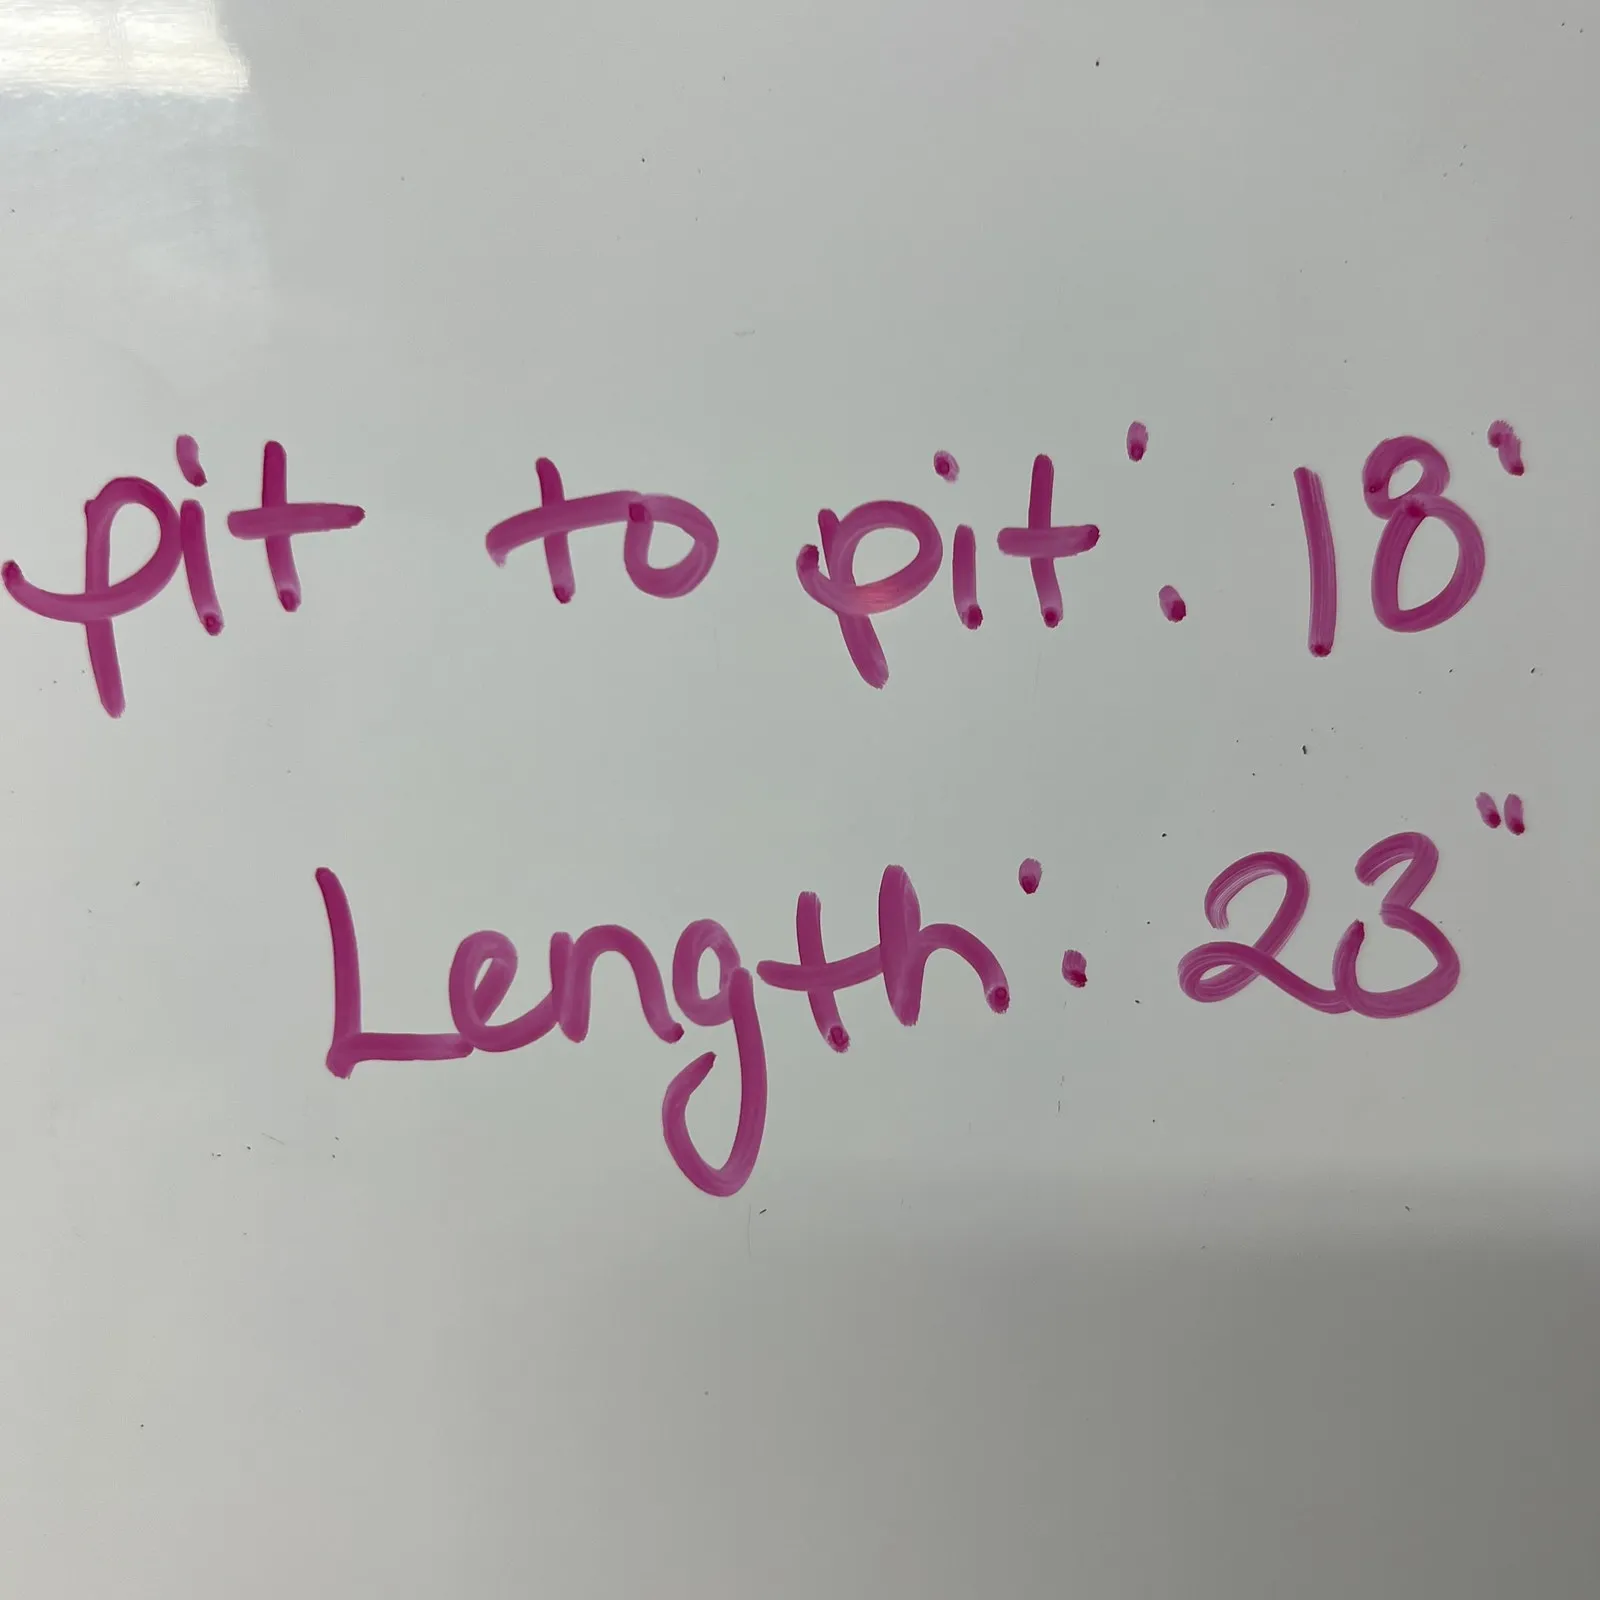 pit to pit: 18"
Length: 23"